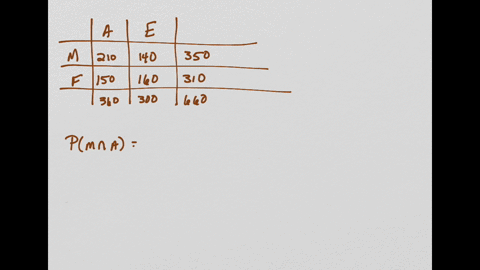 A E
M 210 140 350
F 150 160 310
360 300 660
P(M∩A) =